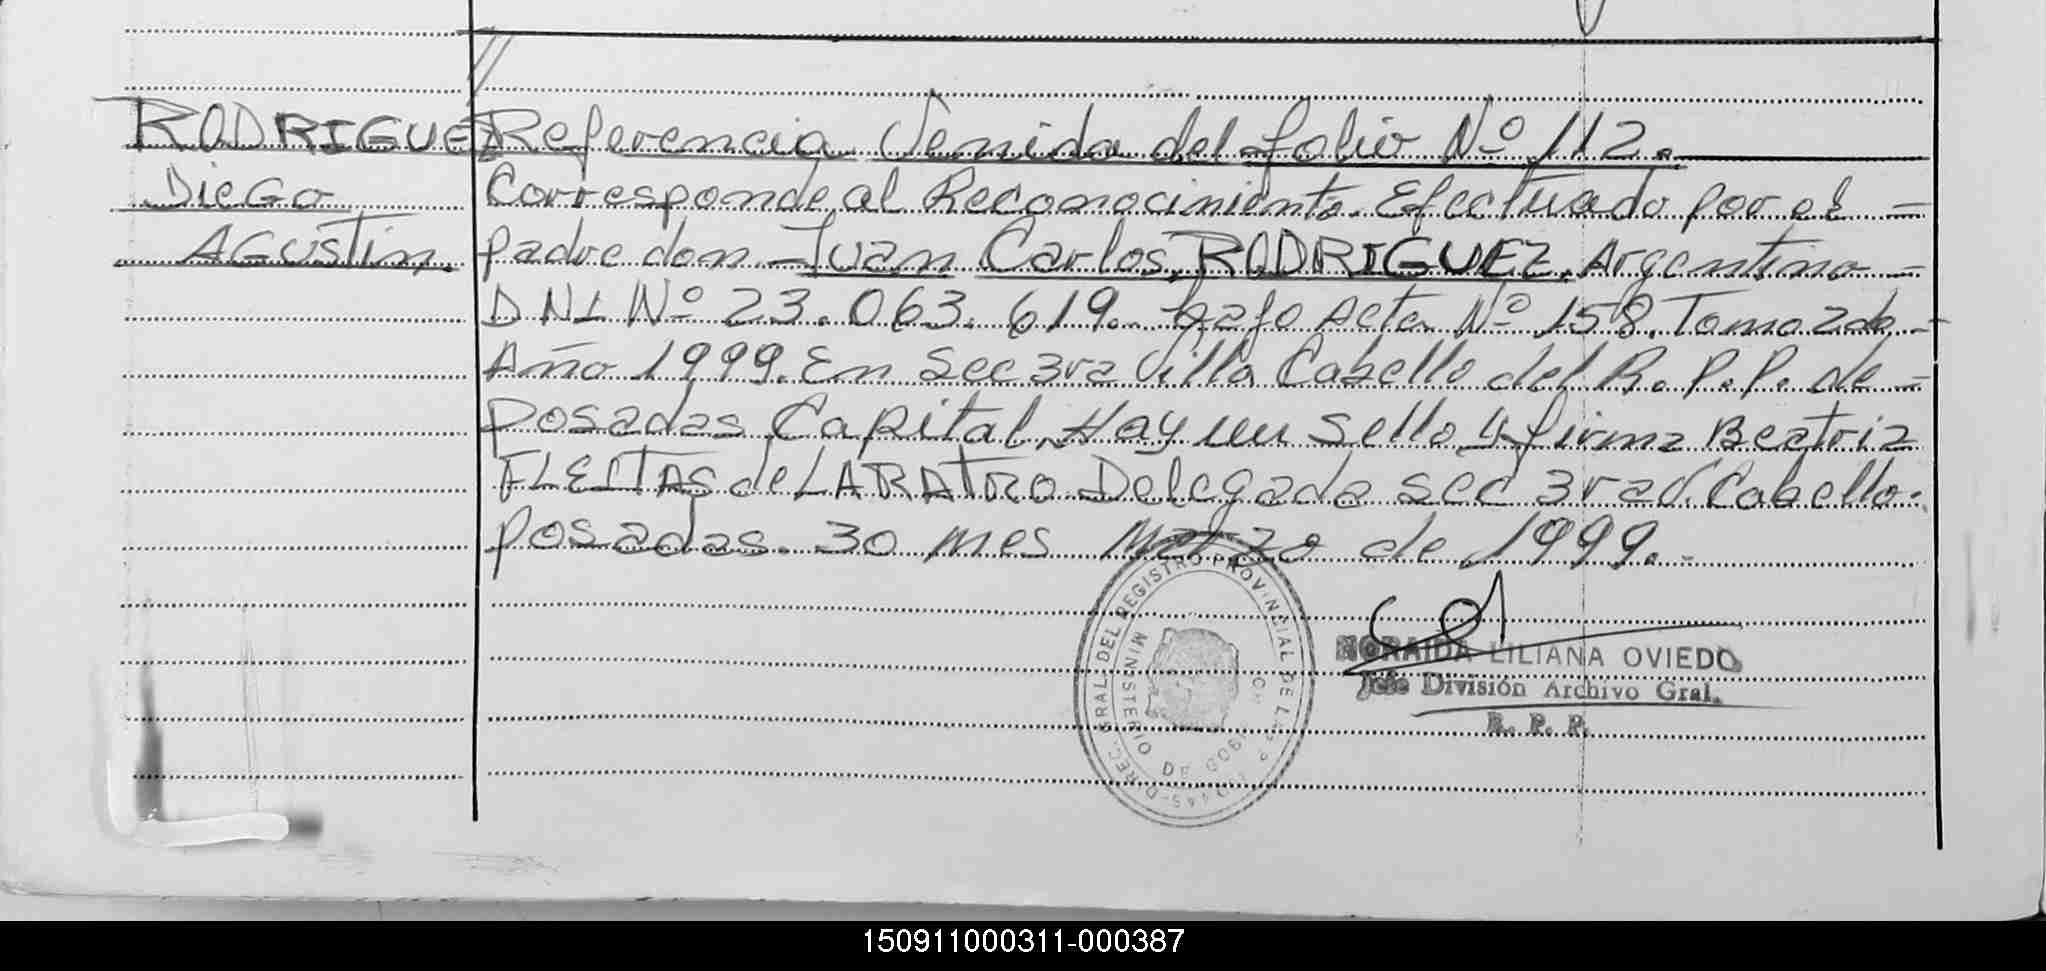 RODRIGUEZ Referencia Venida del folio Nº 112.
Diego Corresponde al Reconocimiento. Efectuado por el -
Agustin. padre don - Juan Carlos, RODRIGUEZ, Argentino -
DNI Nº 23.063.619. bajo Acta Nº 158. Tomo 2do -
Año 1999. En Sec 3ra Villa Cabello del R. P. P. de -
Posadas Capital, Hay un Sello y firma Beatriz
FLEITAS de LARATRO Delegada sec 3ra V. Cabello.
Posadas. 30 mes Marzo de 1999.-
DIREC. GRAL. DEL REGISTRO PROVINCIAL DE LAS P
MINISTERIO DE GOBI
NORAIDA LILIANA OVIEDO
Jefe División Archivo Gral.
R. P. P.
150911000311-000387